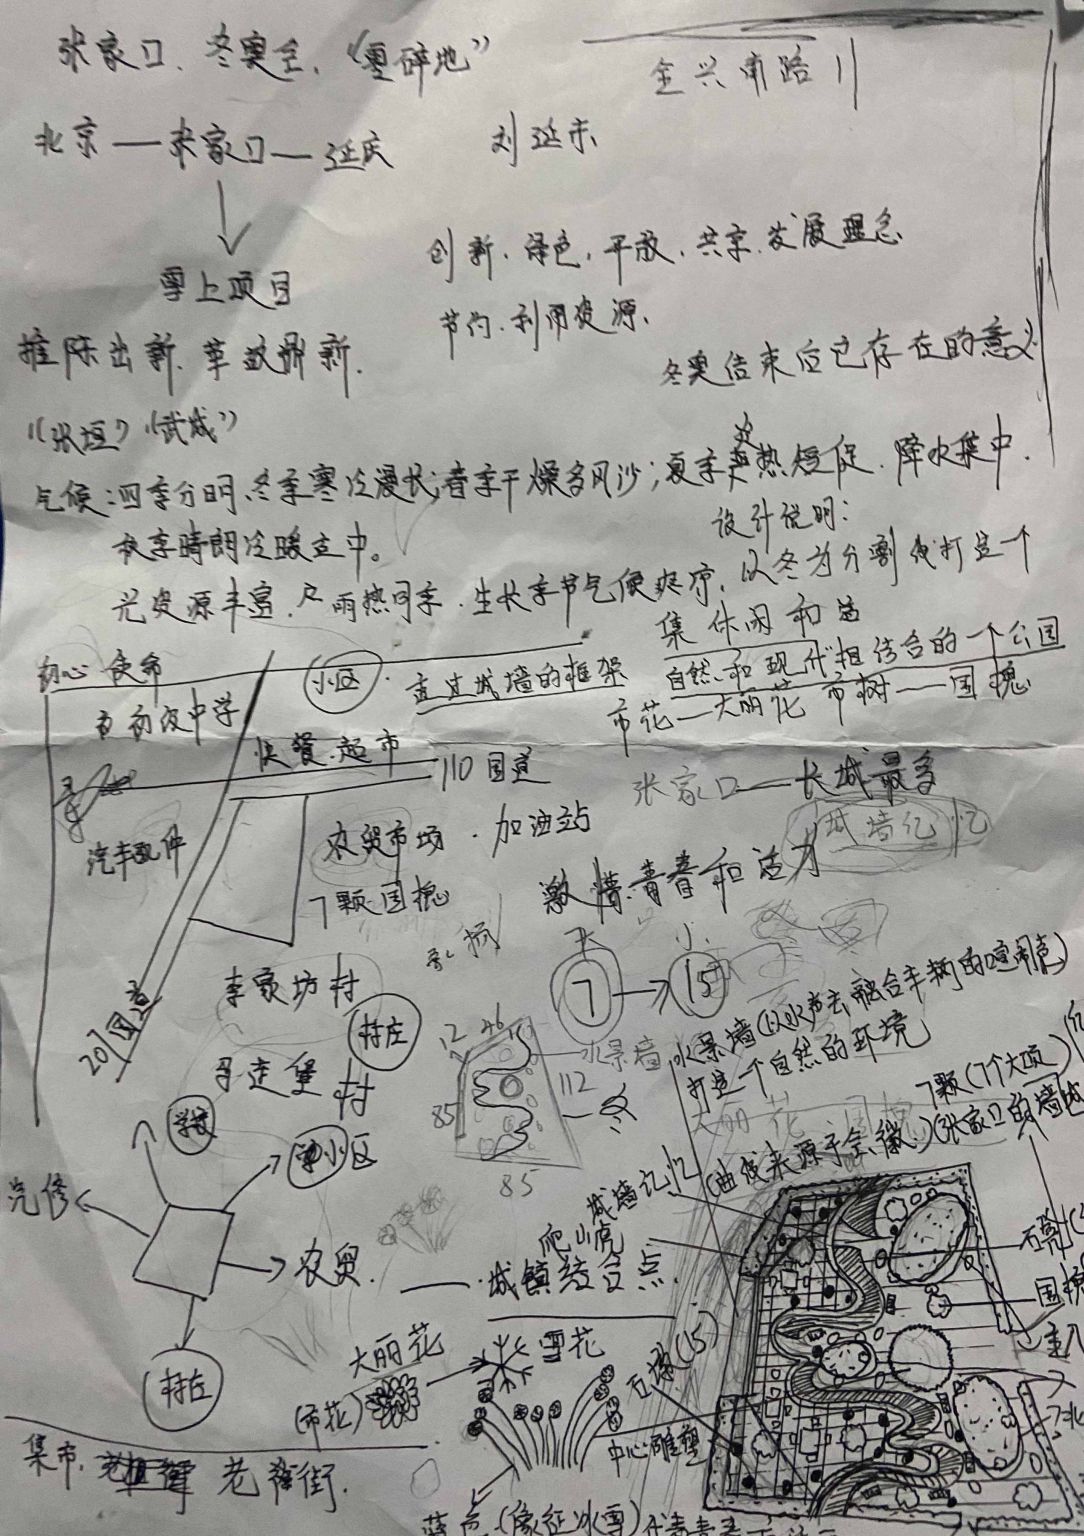 张家口、冬奥会、“零碎地”
金兴南路
北京—张家口—延庆
刘延东
雪上项目
创新、绿色、开放、共享、发展理念
节约、利用资源、
推陈出新、革故鼎新.
冬奥结束后它存在的意义
“张垣”“武城”
气候:四季分明、冬季寒冷漫长;春季干燥多风沙;夏季炎热短促、降水集中.
秋季晴朗冷暖适中。
设计说明:
光资源丰富、雨热同季、生长季节气候爽凉.
以冬为分割线打造一个
集休闲和
自然和现代相结合的一个公园
初心 使命
小区
走过城墙的框架
市花—大丽花 市树——国槐
初级中学
快餐、超市
110国道
张家口——长城最多
城墙记忆
汽车配件
农贸市场、加油站
激情、青春和活力
7颗国槐
7
15
李家坊村
村庄
207国道
堡村
12
46
水景墙
112
85
85
水景墙(以水声去融合车辆的喧闹声)
打造一个自然的环境
7颗(7个大项)
大丽花 国槐
(曲线来源于会徽)
(张家口的墙
学校
小区
汽修
农贸
村庄
城墙记忆
爬山虎
——城镇结合点.
石凳
国槐
主入
大丽花
(市花)
雪花
(15)
中心雕塑
集市、
老街.
蓝色(象征冰雪)